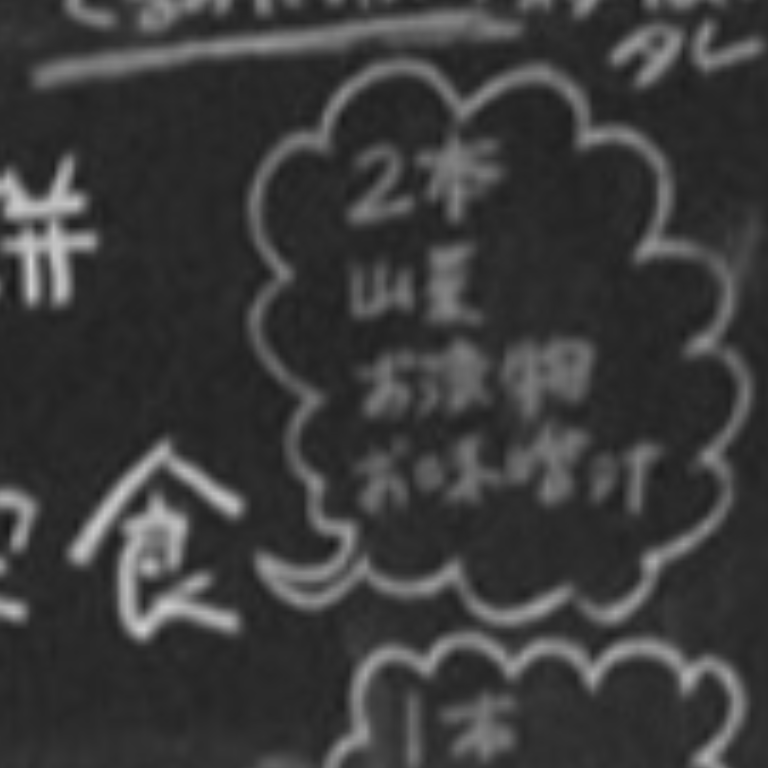 タレ
2本
山夏
お漬物
お味噌汁
丼
食
1本